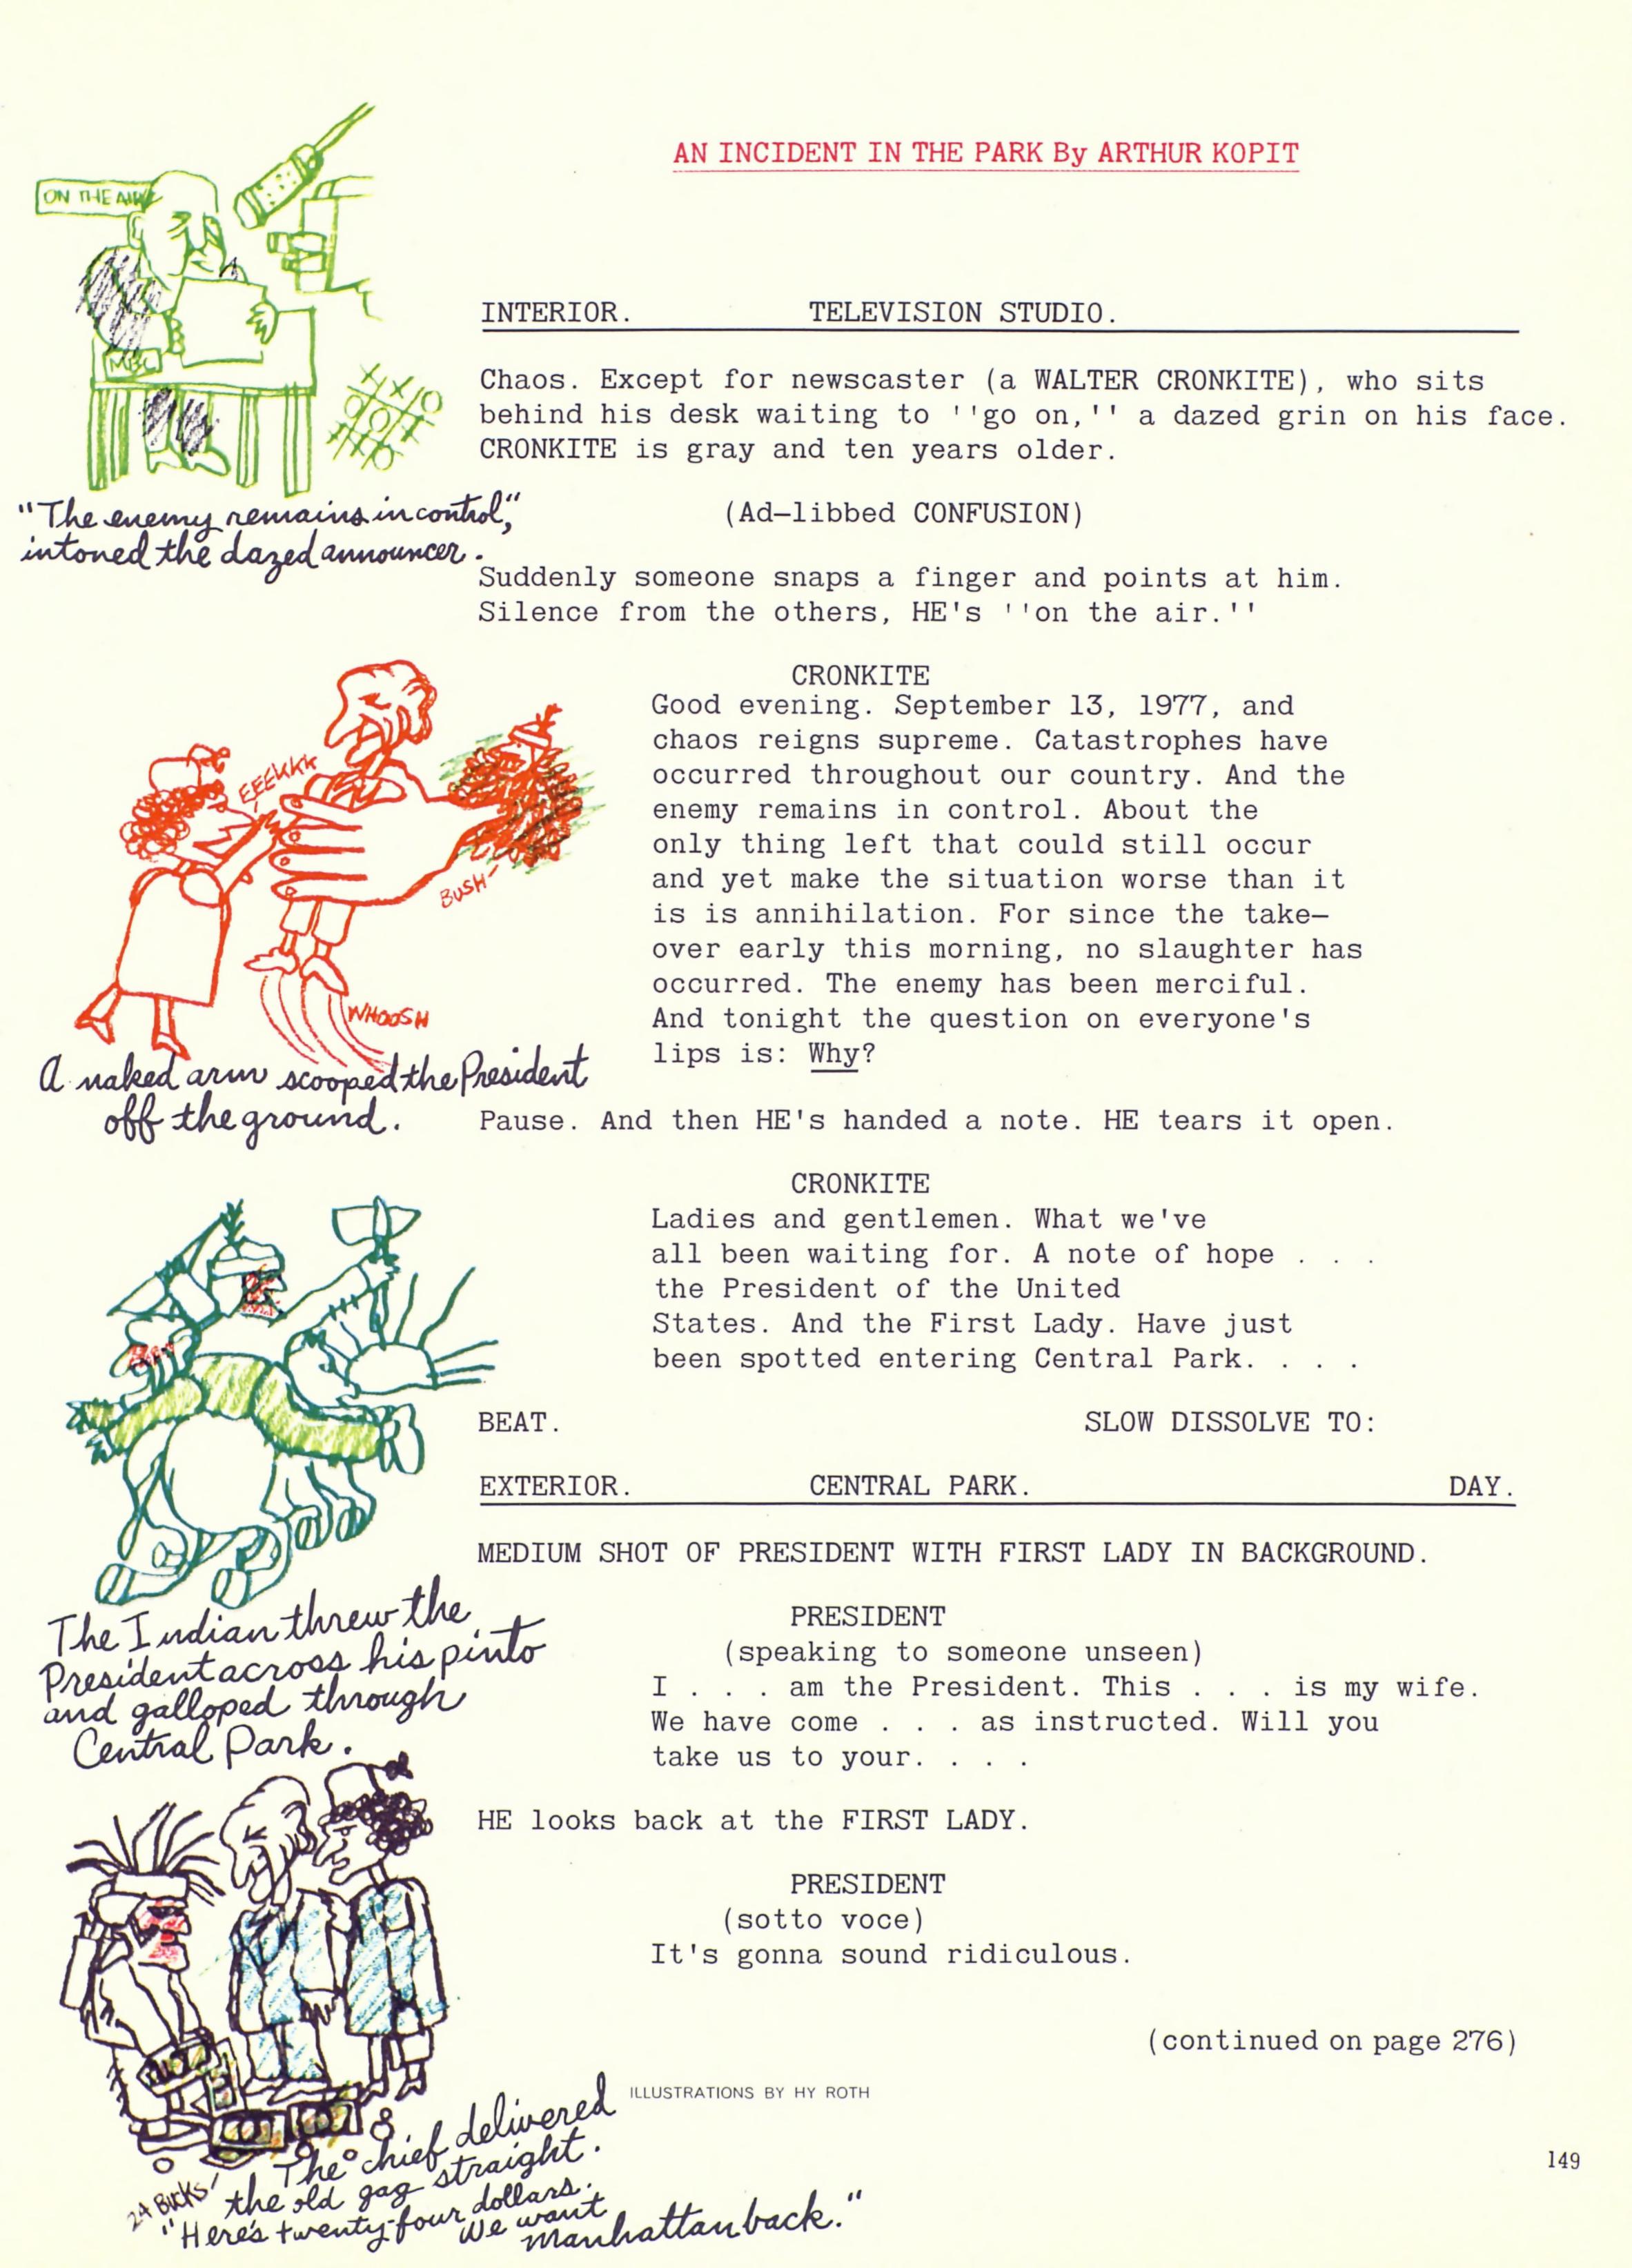 AN INCIDENT IN THE PARK By ARTHUR KOPIT
ON THE AIR
MBC
"The enemy remains in control,"
intoned the dazed announcer.
INTERIOR. TELEVISION STUDIO.
Chaos. Except for newscaster (a WALTER CRONKITE), who sits
behind his desk waiting to ''go on,'' a dazed grin on his face.
CRONKITE is gray and ten years older.
(Ad-libbed CONFUSION)
Suddenly someone snaps a finger and points at him.
Silence from the others, HE's ''on the air.''
CRONKITE
Good evening. September 13, 1977, and
chaos reigns supreme. Catastrophes have
occurred throughout our country. And the
enemy remains in control. About the
only thing left that could still occur
and yet make the situation worse than it
is is annihilation. For since the take-
over early this morning, no slaughter has
occurred. The enemy has been merciful.
And tonight the question on everyone's
lips is: Why?
EEEKKK
BUSH
WHOOSH
A naked arm scooped the President
off the ground.
Pause. And then HE's handed a note. HE tears it open.
CRONKITE
Ladies and gentlemen. What we've
all been waiting for. A note of hope . . .
the President of the United
States. And the First Lady. Have just
been spotted entering Central Park. . . .
BEAT. SLOW DISSOLVE TO:
EXTERIOR. CENTRAL PARK. DAY.
MEDIUM SHOT OF PRESIDENT WITH FIRST LADY IN BACKGROUND.
The Indian threw the
President across his pinto
and galloped through
Central Park.
PRESIDENT
(speaking to someone unseen)
I . . . am the President. This . . . is my wife.
We have come . . . as instructed. Will you
take us to your. . . .
HE looks back at the FIRST LADY.
PRESIDENT
(sotto voce)
It's gonna sound ridiculous.
(continued on page 276)
ILLUSTRATIONS BY HY ROTH
24 BUCKS!
The chief delivered
the old gag straight.
"Here's twenty-four dollars.
We want
Manhattan back."
149